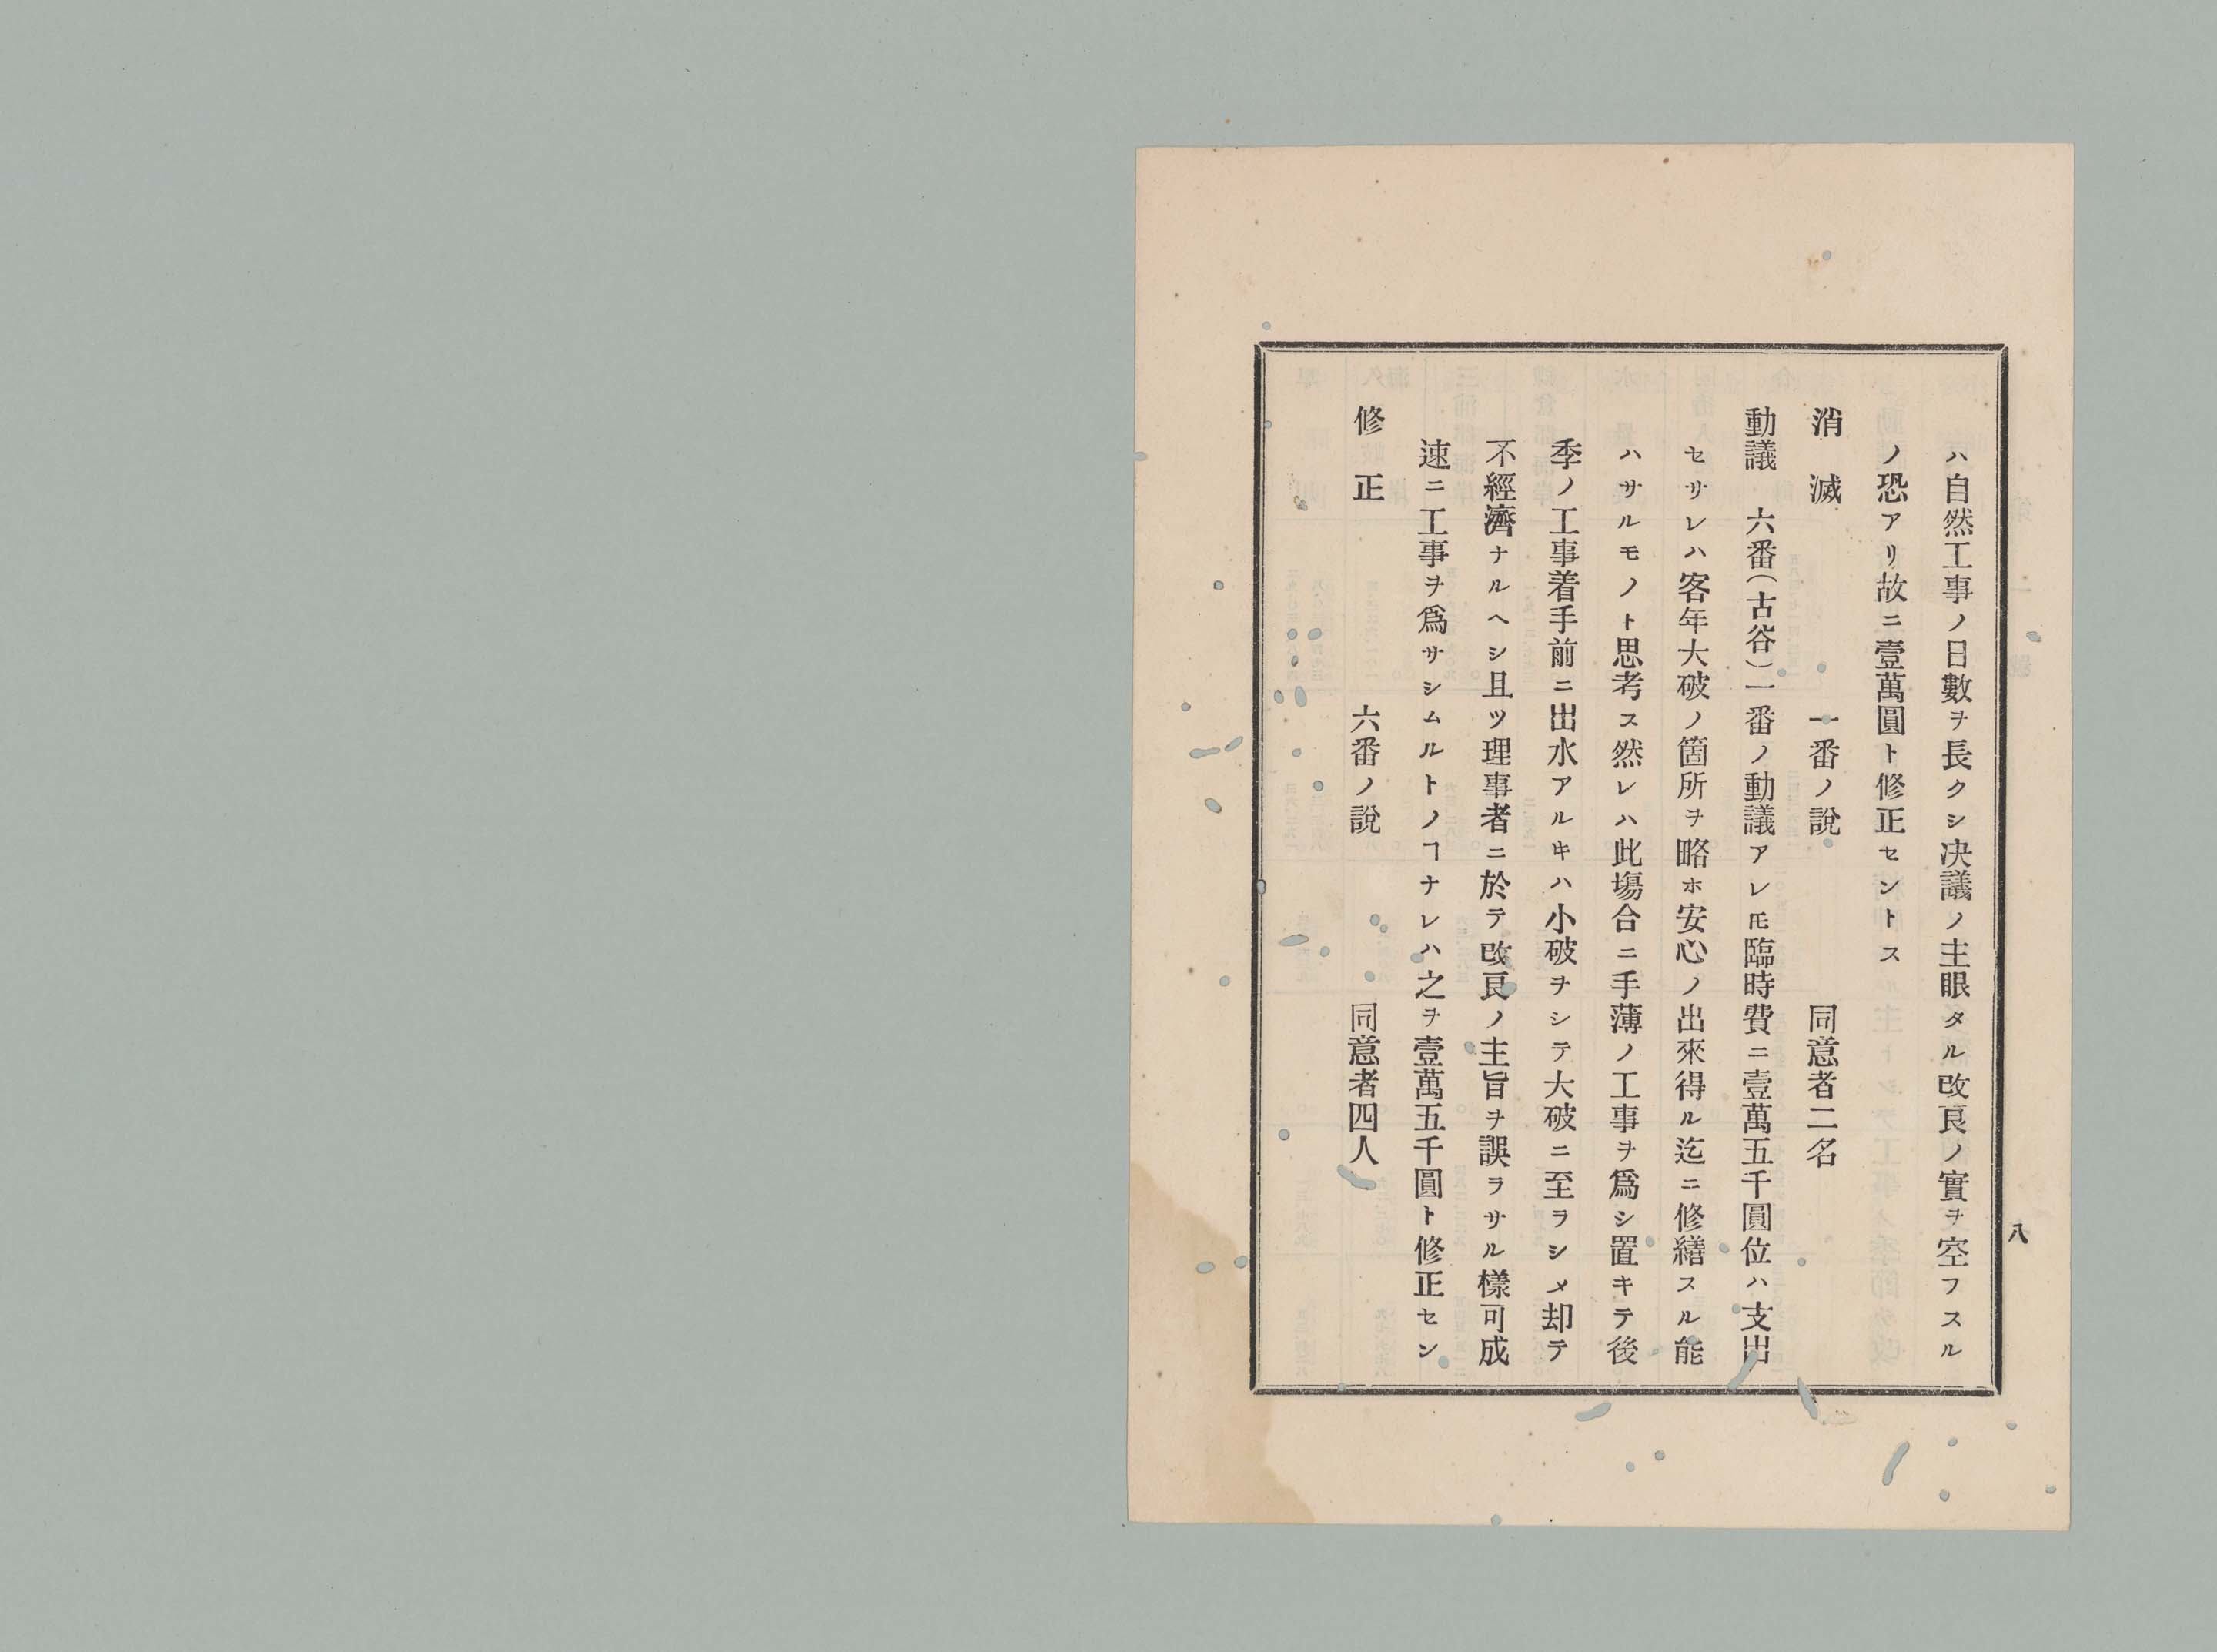 ハ自然工事ノ日數ヲ長クシ决議ノ主眼タル改良ノ實ヲ空フスル
ノ恐アリ故ニ壹萬圓ト修正セントス
消滅　一番ノ說　同意者二名
動議　六番（古谷）一番ノ動議アレ𪜈臨時費ニ壹萬五千圓位ハ支出
セサレハ客年大破ノ箇所ヲ略ホ安心ノ出來得ル迄ニ修繕スル能
ハサルモノト思考ス然レハ此塲合ニ手薄ノ工事ヲ爲シ置キテ後
季ノ工事着手前ニ出水アルキハ小破ヲシテ大破ニ至ラシメ却テ
不經濟ナルヘシ且ツ理事者ニ於テ改良ノ主旨ヲ誤ラサル樣可成
速ニ工事ヲ爲サシムルトノヿナレハ之ヲ壹萬五千圓ト修正セン
修正　六番ノ說　同意者四人
八